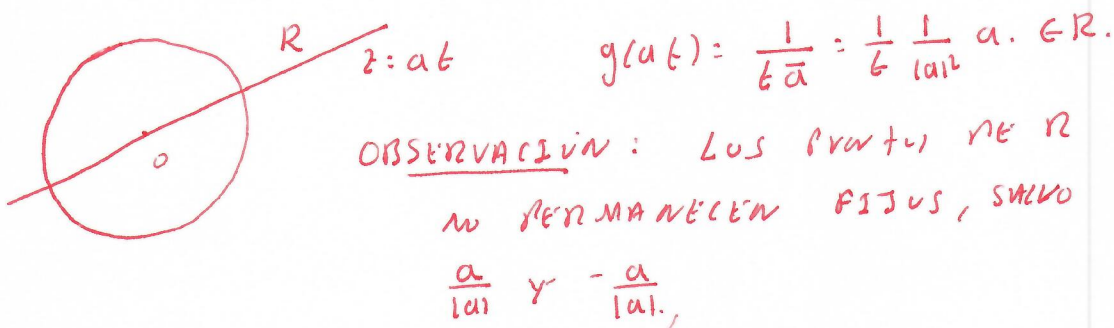 R
z = at
g(at) = \frac{1}{t \overline{a}} = \frac{1}{t} \frac{1}{|a|^2} a. ∈ R.
O
OBSERVACIÓN: LOS PUNTOS DE R
NO PERMANECEN FIJOS, SALVO
\frac{a}{|a|} Y -\frac{a}{|a|}.